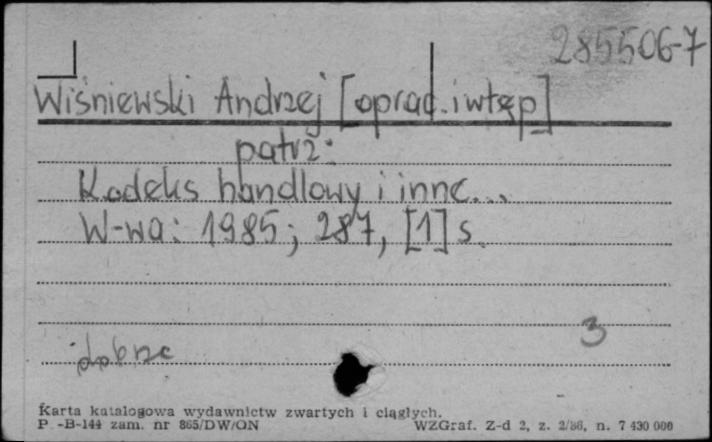 285506-7
Wiśniewski Andrzej [oprac. i wtęp]
patrz:
Kodeks handlowy i inne...
W-wa: 1985; 287, [1] s.
3
dobrze
Karta katalogowa wydawnictw zwartych i ciągłych.
P.-B-144 zam. nr 865/DW/ON WZGraf. Z-d 2, z. 2/86, n. 7 430 000